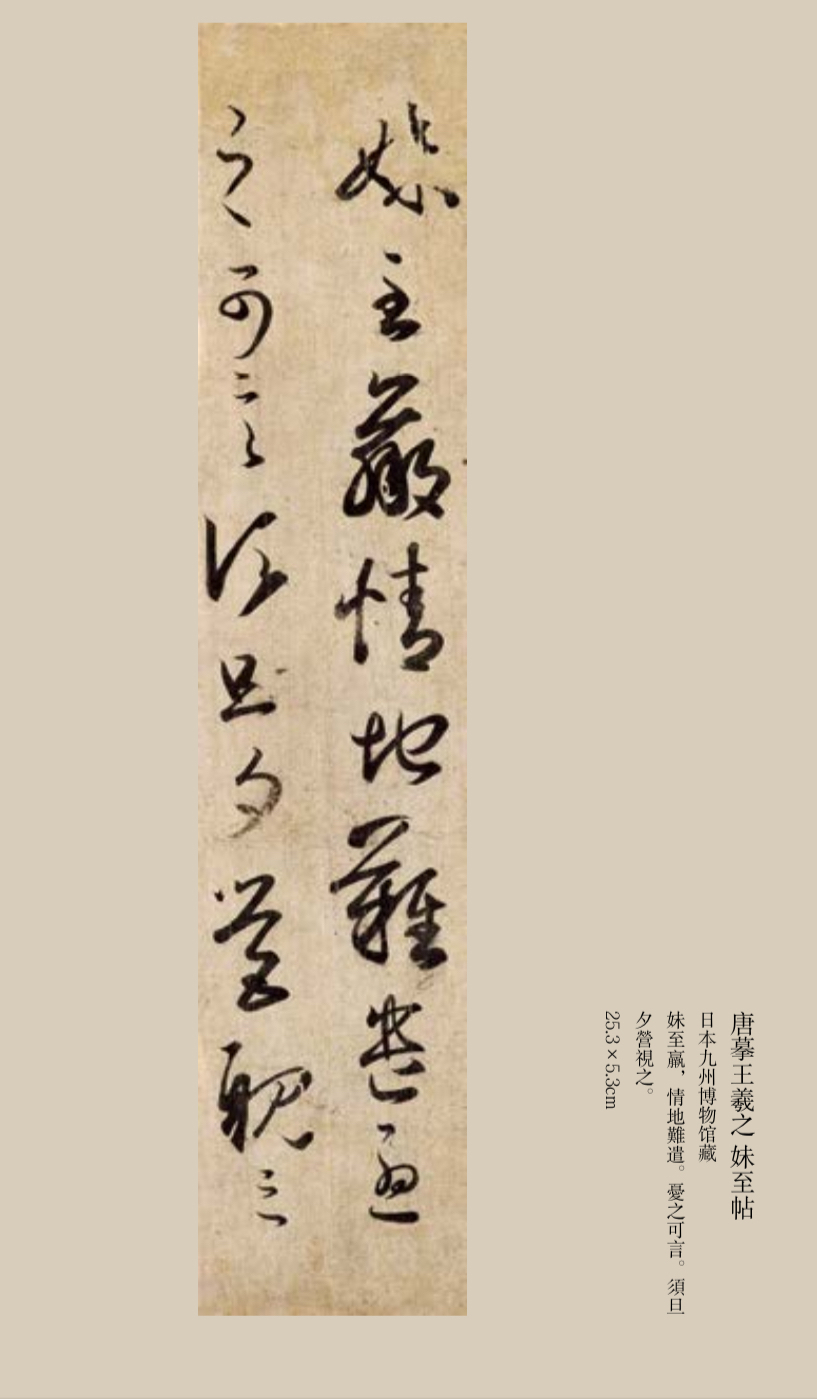 唐摹王羲之 妹至帖
日本九州博物馆藏
妹至羸，情地難遣。憂之可言。須旦
夕營視之。
25.3×5.3cm
妹至羸情地難遣憂
之可言須旦夕營視之